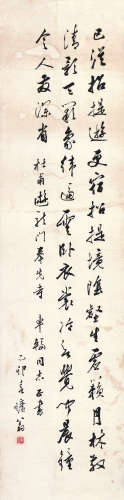 已從招提遊更宿招提境陰壑生虛籟月林散
清影天闕象緯逼雲臥衣裳冷欲覺聞晨鐘
令人發深省 遊龍門奉先寺 同志正書
乙卯春 翁